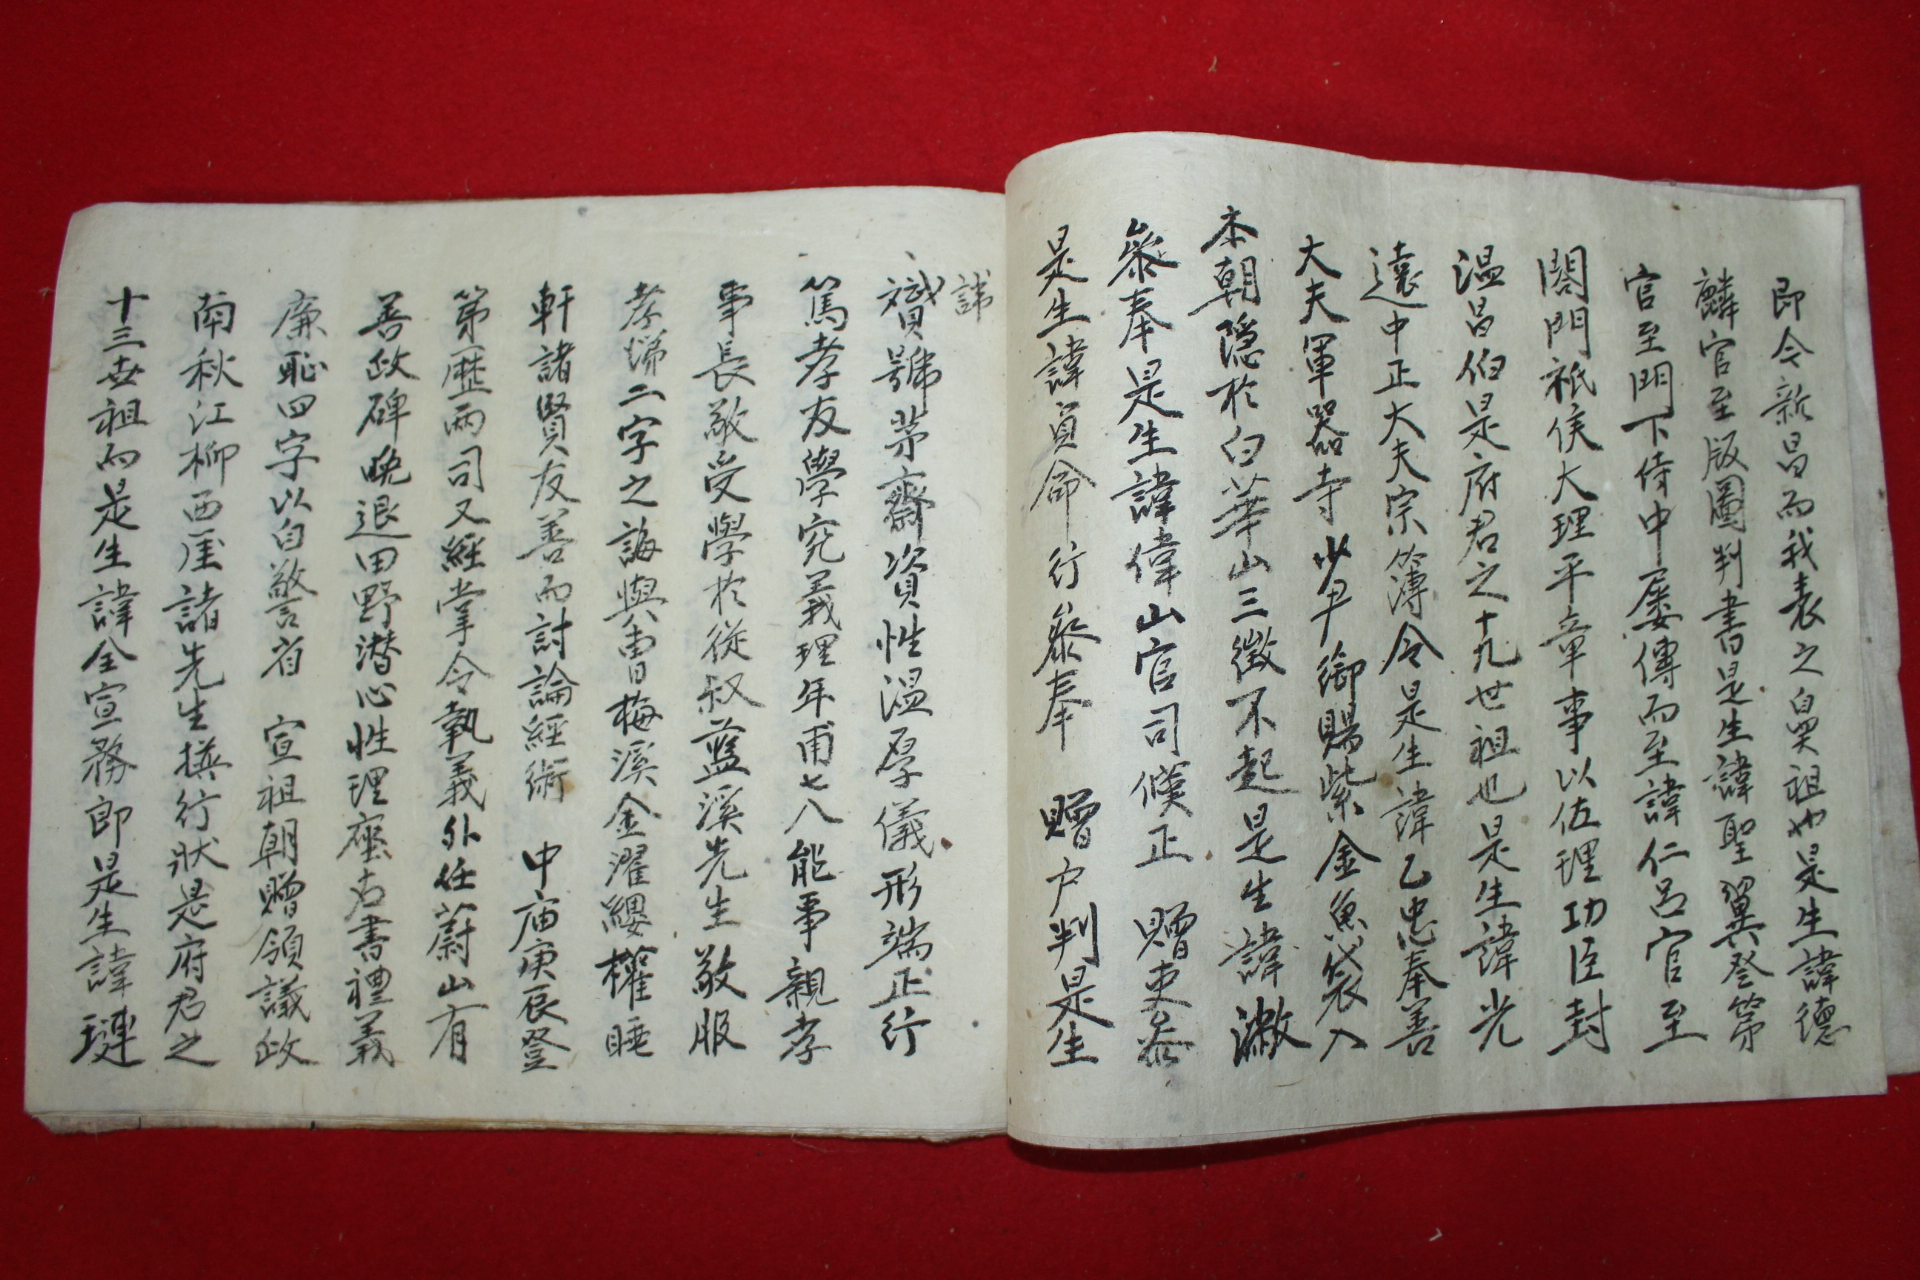 即今新昌而我表之鼻祖也是生諱德
麟官至版圖判書是生諱聖翼登第
官至門下侍中屡傳而至諱仁呂官至
閤門祇侯大理平章事以佐理功臣封
温昌伯是府君之十九世祖也是生諱光
遠中正大夫宗簿令是生諱乙忠奉善
大夫軍器寺少尹御賜紫金魚袋入
本朝隱於白華山三徵不起是生諱激
叅奉是生諱偉山官司僕正 贈吏叅
是生諱員命行叅奉 贈户判是生
諱
贇號茅齋資性温厚儀形端正行
篤孝友學究義理年甫七八能事親孝
事長敬受學於從叔藍溪先生敬服
孝悌二字之誨與曺梅溪金濯纓權睡
軒諸賢友善而討論經術 中庙庚辰登
第歴兩司又經掌令執義外任蔚山有
善政碑晚退田野潜心性理座右書禮義
廉恥四字以自警省 宣祖朝贈領議政
南秋江柳西厓諸先生撰行狀是府君之
十三世祖而是生諱全宣務郎是生諱璉